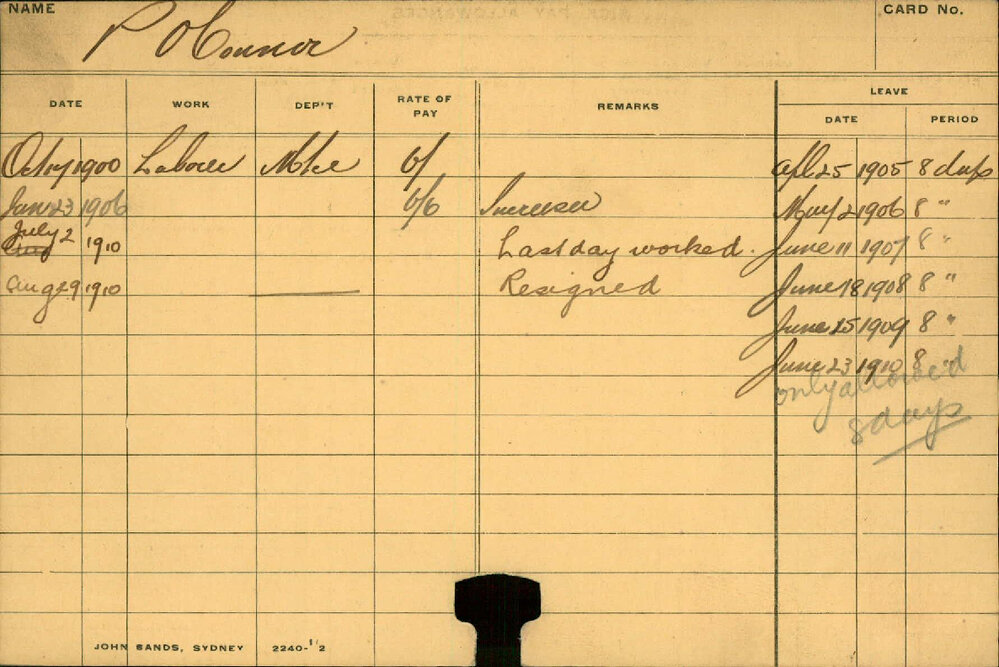 NAME P O'Connor CARD No.
LEAVE
DATE WORK DEP'T RATE OF PAY REMARKS DATE PERIOD
Oct 17 1900 Labourer 6/ Apl 25 1905 8 days
Jan 23 1906 6/6 Increase May 2 1906 8 "
July 2 1910 Last day worked. June 11 1907 8 "
Aug 29 1910 Resigned June 18 1908 8 "
June 25 1909 8 "
June 23 1910 8 "
only allowed
8 days
JOHN SANDS, SYDNEY 2240-1/2